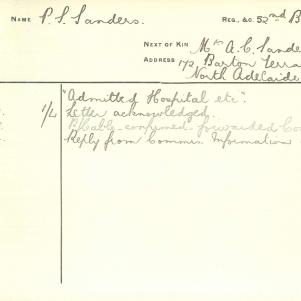 NAME P. S. Sanders. REG., &C. 52nd B
NEXT OF KIN Mr A. C. Sande
ADDRESS 172 Barton Terra
North Adelaide
"Admitted Hospital etc".
1/2 Letter acknowledged.
Cable confirmed. forwarded Co
Reply from Commrs. Information